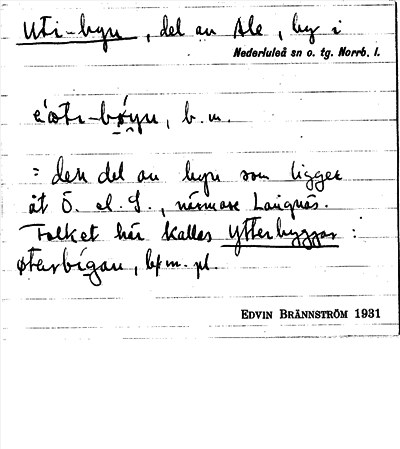 Uti-byn, del av Ale, by i
Nederluleå sn o. tg. Norrb. l.
b. m.
= den del av byn som ligger
åt Ö. el. S., närmare Langnäs.
Folket här kallas Ytterbyggar:
bf m. pl.
EDVIN BRÄNNSTRÖM 1931